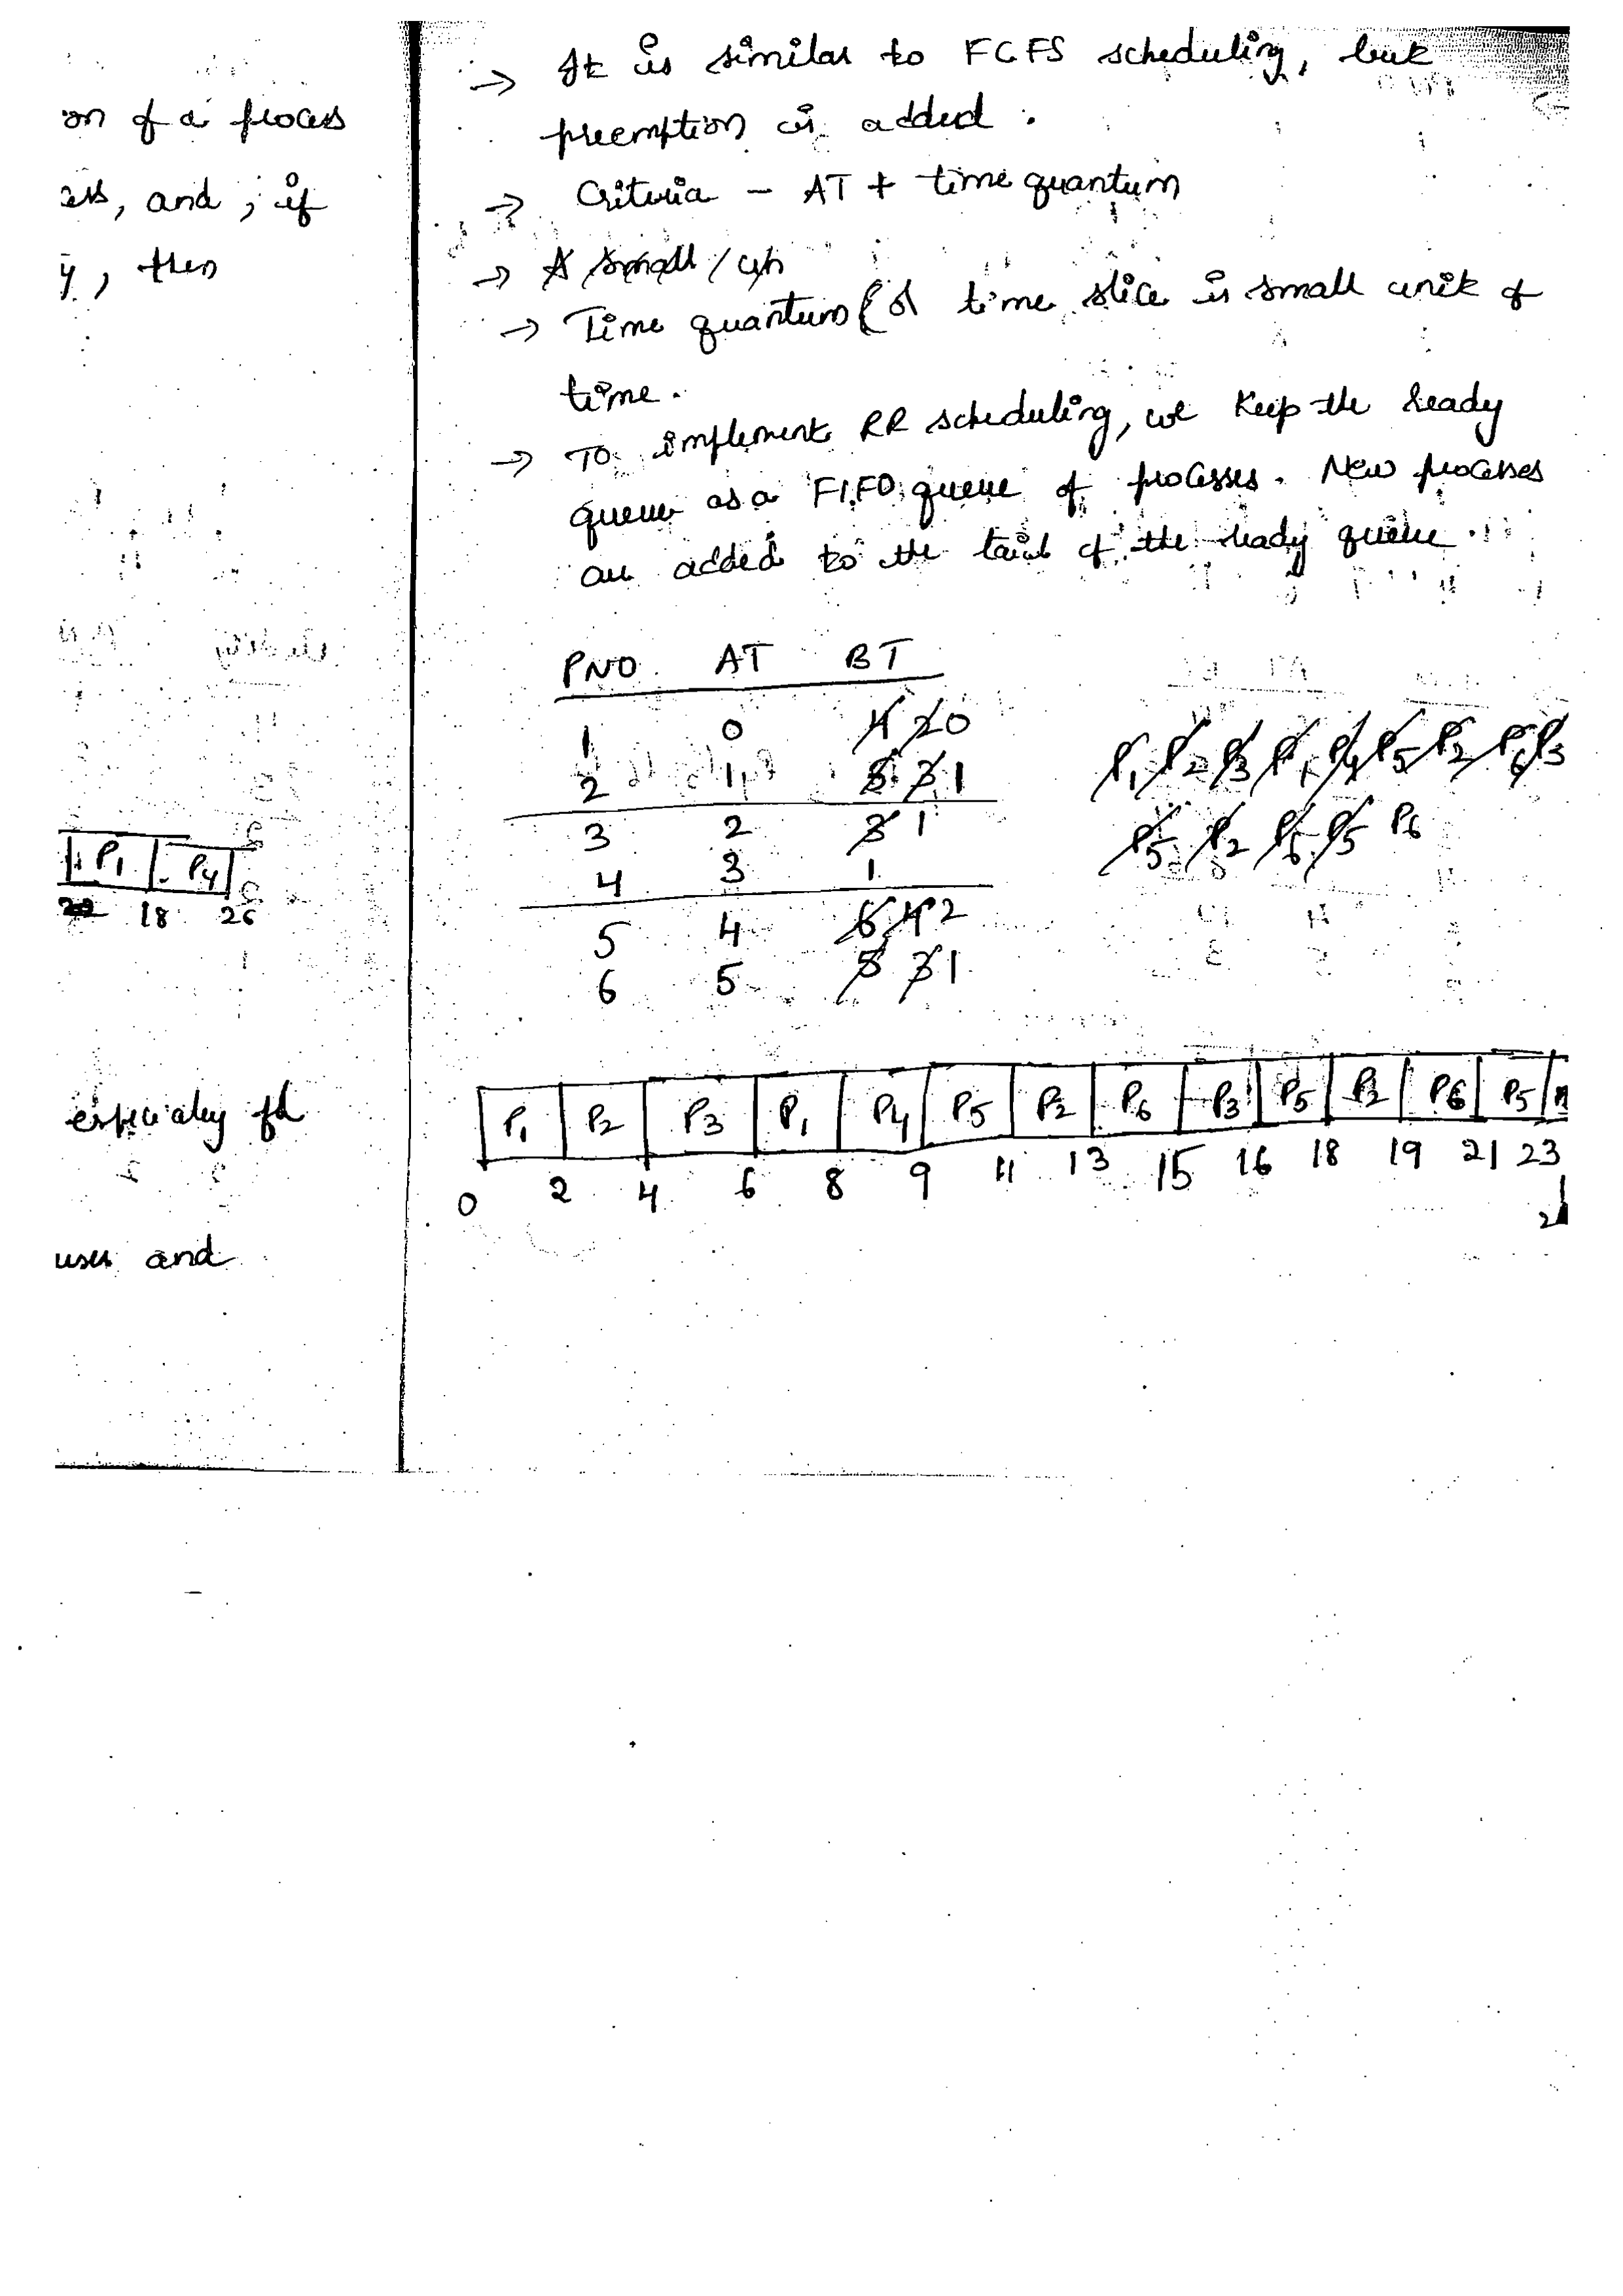 on of a process
ess, and, if
y, then
P1 P4
18 26
especially for
uses and
→ It is similar to FCFS scheduling, but
preemption is added.
→ Criteria - AT + time quantum
→ A small
→ Time quantum (or time slice is small unit of
time.
→ To implement RR scheduling, we keep the ready
queue as a FIFO queue of processes. New processes
are added to the tail of the ready queue.
PNO AT BT
1 0 4 2 0
2 1 5 3 1
3 2 3 1
4 3 1
5 4 6 4 2
6 5 5 3 1
P1 P2 P3 P1 P4 P5 P2 P6 P3
P5 P2 P6 P5 P6
P1 P2 P3 P1 P4 P5 P2 P6 P3 P5 P2 P6 P5
0 2 4 6 8 9 11 13 15 16 18 19 21 23